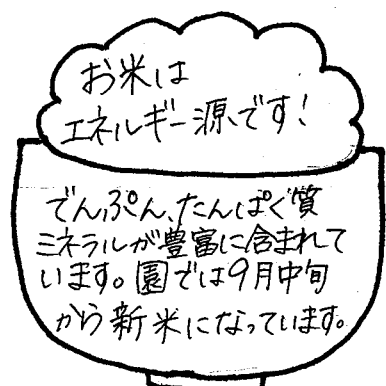 お米は
エネルギー源です!
でんぷん、たんぱく質
ミネラルが豊富に含まれて
います。園では9月中旬
から新米になっています。